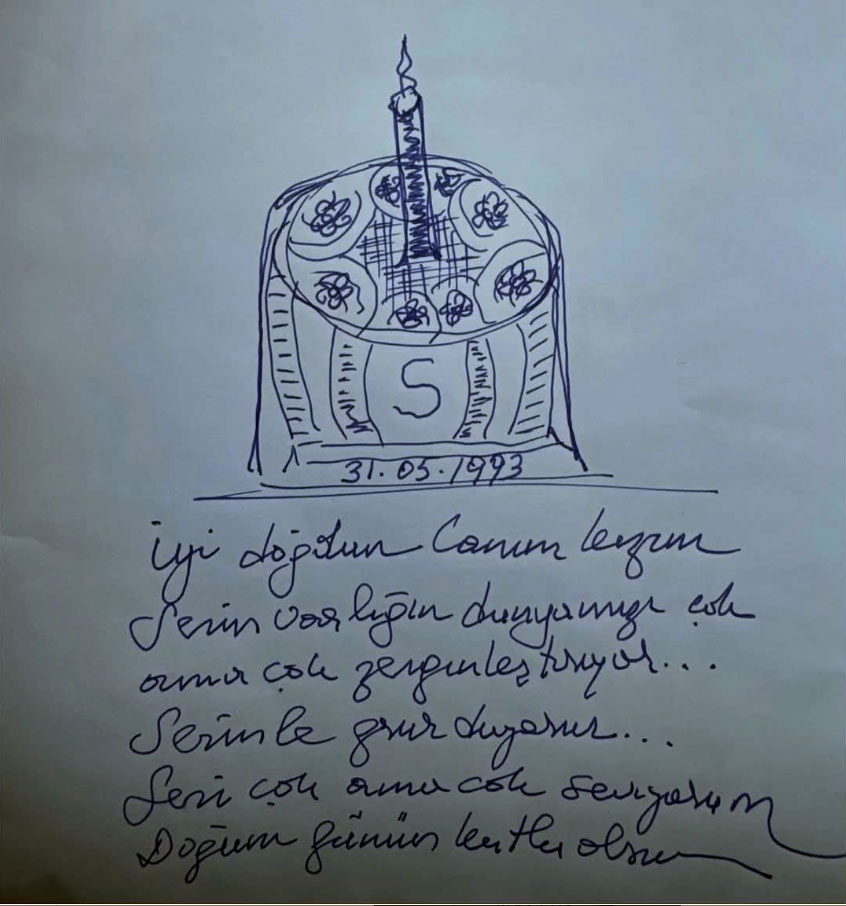 S
31.05.1993
İyi doğdun Canım kızım
Senin varlığın dünyamızı çok
ama çok zenginleştiriyor...
Seninle gurur duyuyorum...
Seni çok ama çok seviyorum
Doğum günün kutlu olsun